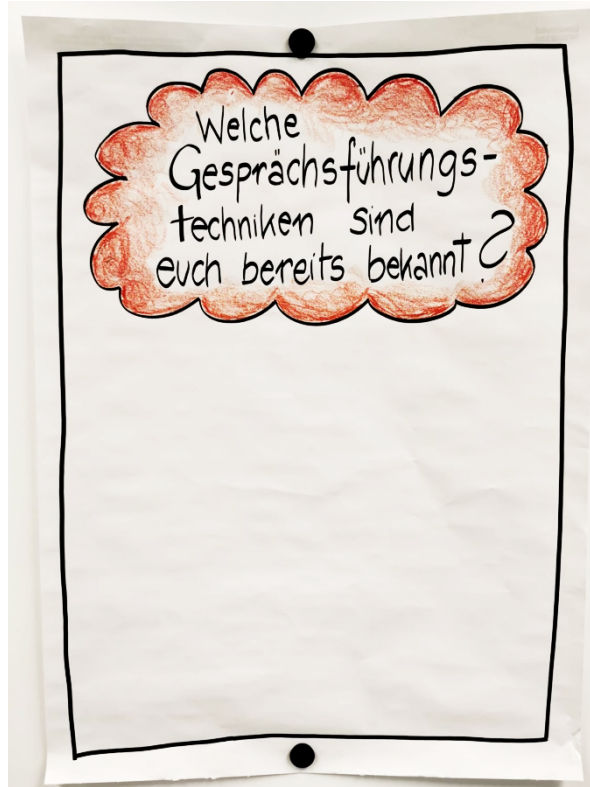 Welche
Gesprächsführungs-
techniken sind
euch bereits bekannt?